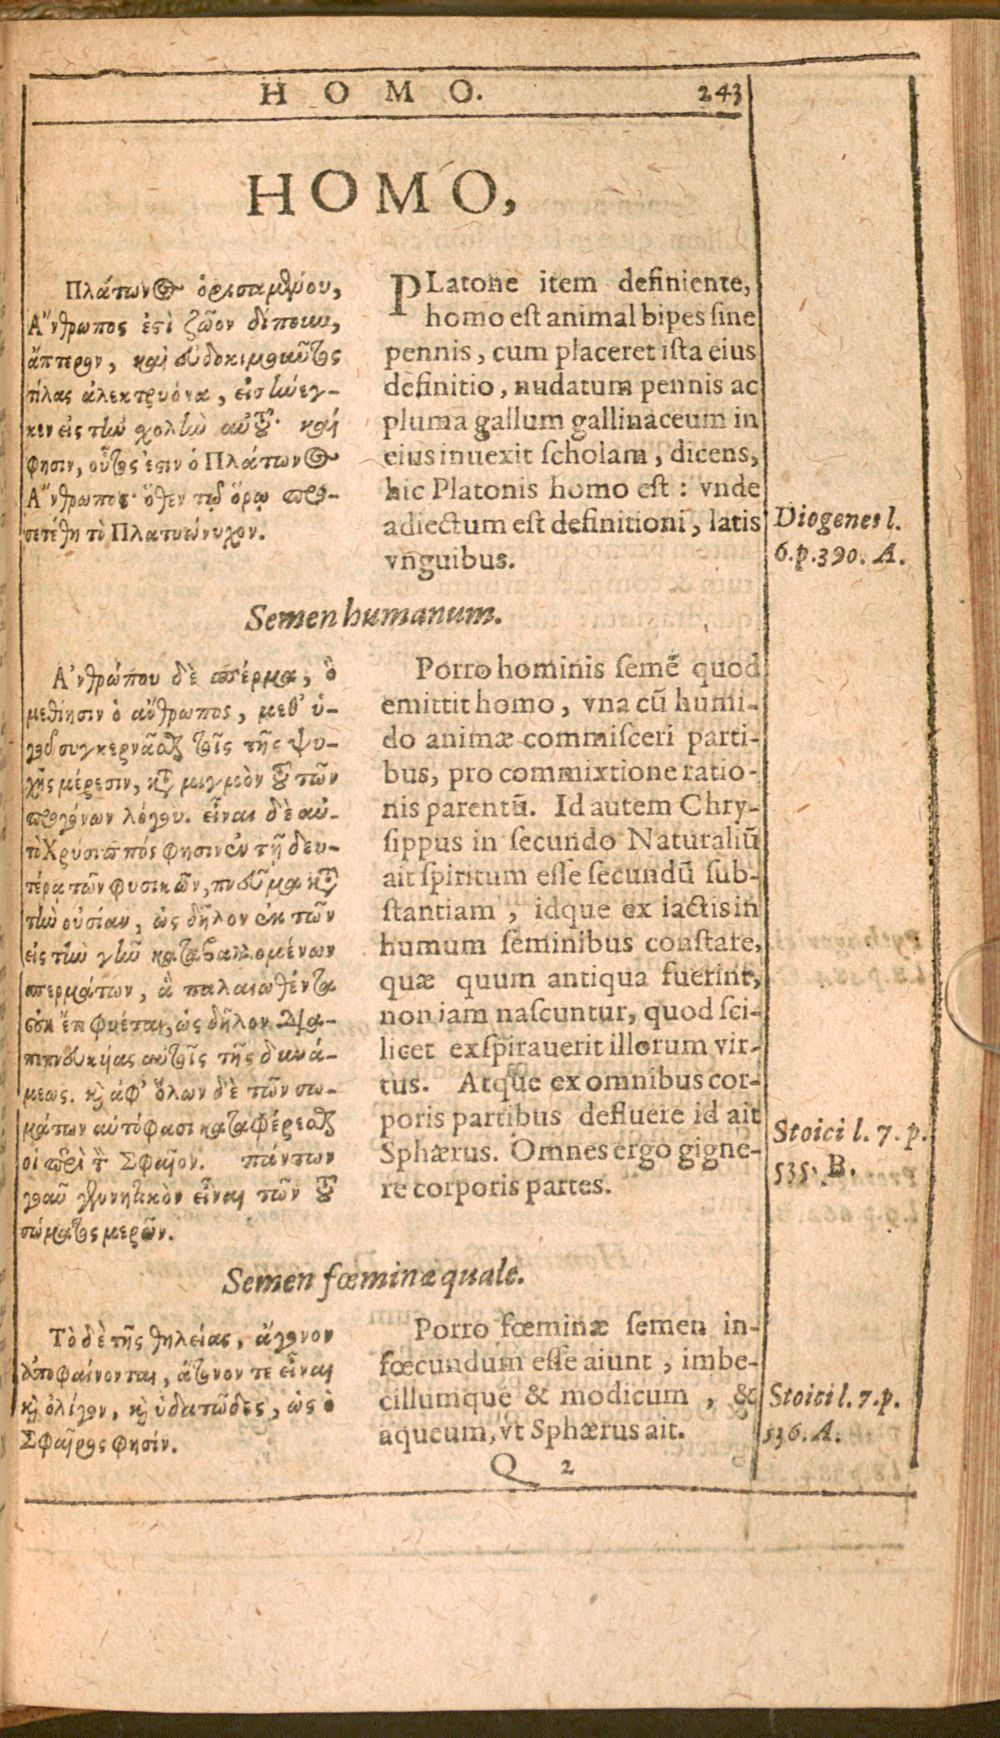 HOMO. 243
HOMO,
Πλάτων⊙ ὁρισαμένου,
Α῎νθρωπος ἐστὶ ζῶον δίπουν,
ἄπτερον, καὶ εὐδοκιμοῦντος
τίλας ἀλεκτρυόνα, εἰσήνεγ-
κεν εἰς τὴν χολὴν αὐτοῦ· καί
φησιν, οὗτός ἐστιν ὁ Πλάτων⊙
Α῎νθρωπος· ὅθεν τῷ ὅρῳ προσ-
ετέθη τὸ Πλατυώνυχον.
PLatone item definiente,
homo est animal bipes sine
pennis, cum placeret ista eius
definitio, nudatum pennis ac
pluma gallum gallinaceum in
eius inuexit scholam, dicens,
hic Platonis homo est: vnde
adiectum est definitioni, latis
vnguibus.
Diogenes l.
6.p.390. A.
Semen humanum.
Α᾿νθρώπου δὲ σπέρμα, ὃ
μεθίησιν ὁ ἄνθρωπος, μεθ' ὑ-
γροῦ συγκερνᾶσθαι τοῖς τῆς ψυ-
χῆς μέρεσιν, κατὰ μιγμὸν τοῦ τῶν
προγόνων λόγου. εἶναι δὲ αὐ-
τὸ Χρύσιππός φησιν ἐν τῇ δευ-
τέρᾳ τῶν φυσικῶν, πνεῦμα κατὰ
τὴν οὐσίαν, ὡς δῆλον ἐκ τῶν
εἰς τὴν γῆν καταβαλλομένων
σπερμάτων, ἃ παλαιωθέντα
οὐκ ἔτι φύεται, ὡς δῆλον δια-
πεπνευκυίας αὐτοῖς τῆς δυνά-
μεως. καὶ ἀφ' ὅλων δὲ τῶν σω-
μάτων αὐτό φασι καταφέρεσθαι
οἱ περὶ τὸν Σφαῖρον. πάντων
γοῦν γεννητικὸν εἶναι τῶν τοῦ
σώματος μερῶν.
Porro hominis semẽ quod
emittit homo, vna cũ humi-
do animæ commisceri parti-
bus, pro commixtione ratio-
nis parentũ. Id autem Chry-
sippus in secundo Naturaliũ
ait spiritum esse secundũ sub-
stantiam, idque ex iactis in
humum seminibus constare,
quæ quum antiqua fuerint,
non iam nascuntur, quod sci-
licet exspirauerit illorum vir-
tus. Atque ex omnibus cor-
poris partibus defluere id ait
Sphærus. Omnes ergo gigne-
re corporis partes.
Stoici l. 7. p.
535. B.
Semen fœminæ quale.
Τὸ δὲ τῆς θηλείας, ἄγονον
ἀποφαίνονται, ἄτονον τε εἶναι
καὶ ὀλίγον, καὶ ὑδατῶδες, ὡς ὁ
Σφαῖρός φησίν.
Porro fœminæ semen in-
fœcundum esse aiunt, imbe-
cillumque & modicum, &
aqueum, vt Sphærus ait.
Stoici l. 7. p.
536. A.
Q 2